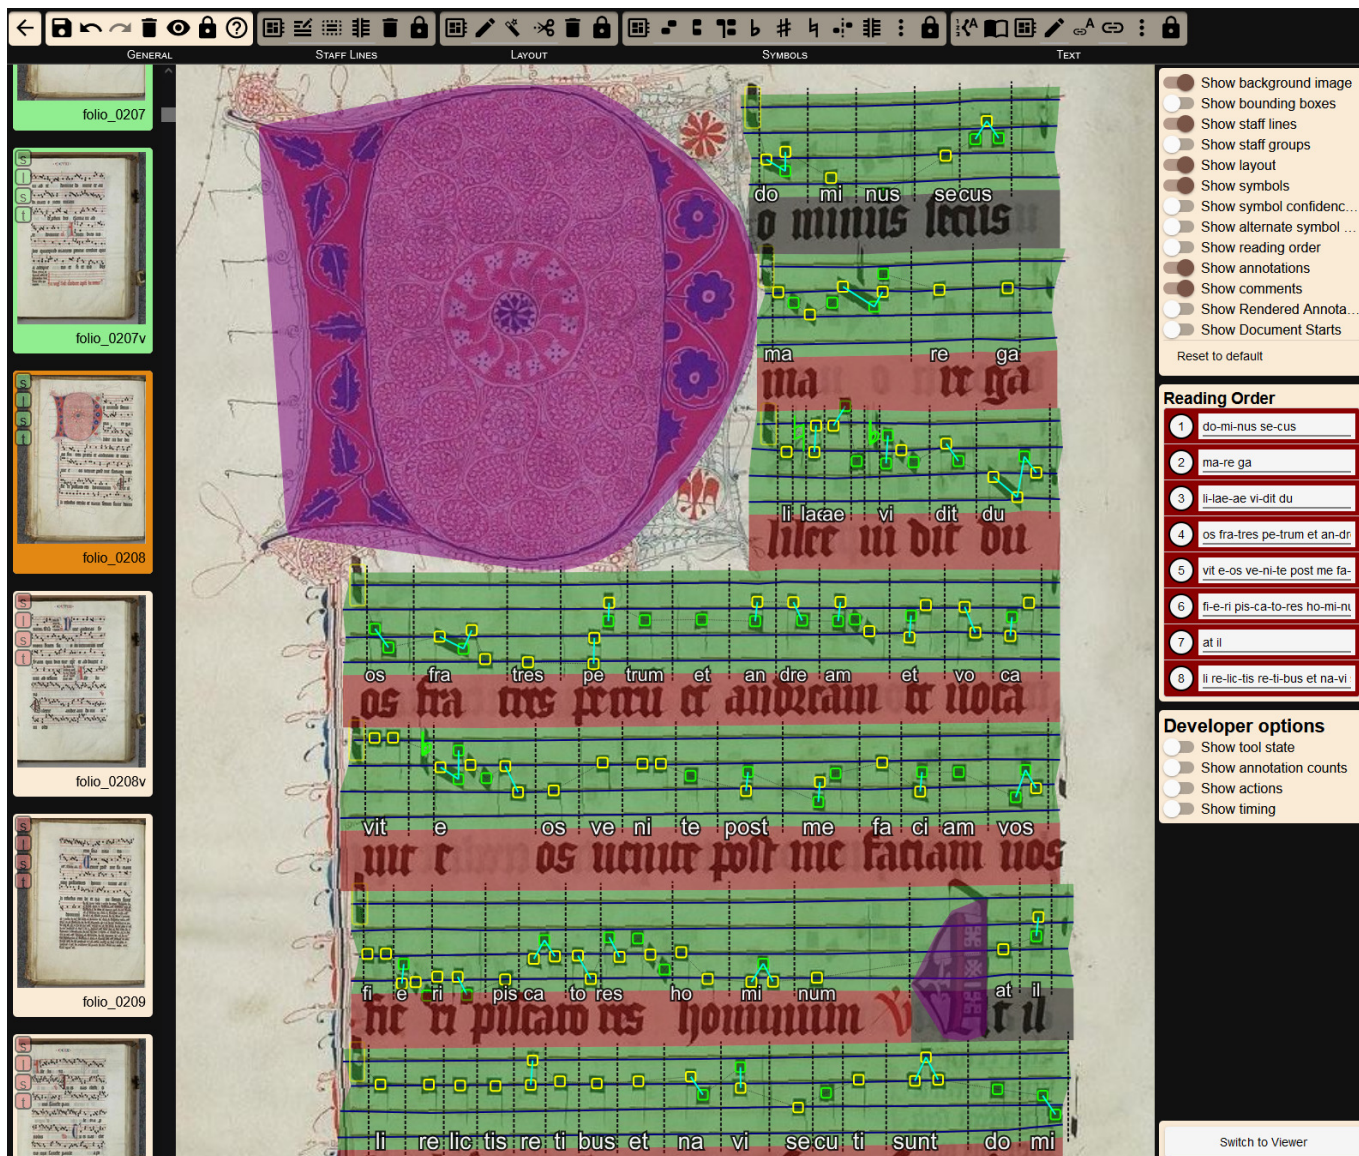 GENERAL
STAFF LINES
LAYOUT
SYMBOLS
TEXT
folio_0207
folio_0207v
folio_0208
folio_0208v
folio_0209
s
l
s
t
s
l
s
t
s
l
s
t
s
l
s
t
s
l
s
t
do mi nus se cus
o minus secus
ma re ga
ma re ga
li lae ae vi dit du
os fra tres pe trum et an dre am et vo ca
vit e os ve ni te post me fa ci am vos
fi e ri pis ca to res ho mi num at il
li re lic tis re ti bus et na vi se cu ti sunt do mi
Show background image
Show bounding boxes
Show staff lines
Show staff groups
Show layout
Show symbols
Show symbol confidenc...
Show alternate symbol ...
Show reading order
Show annotations
Show comments
Show Rendered Annota...
Show Document Starts
Reset to default
Reading Order
1 do-mi-nus se-cus
2 ma-re ga
3 li-lae-ae vi-dit du
4 os fra-tres pe-trum et an-dr
5 vit e-os ve-ni-te post me fa-
6 fi-e-ri pis-ca-to-res ho-mi-nu
7 at il
8 li re-lic-tis re-ti-bus et na-vi
Developer options
Show tool state
Show annotation counts
Show actions
Show timing
Switch to Viewer